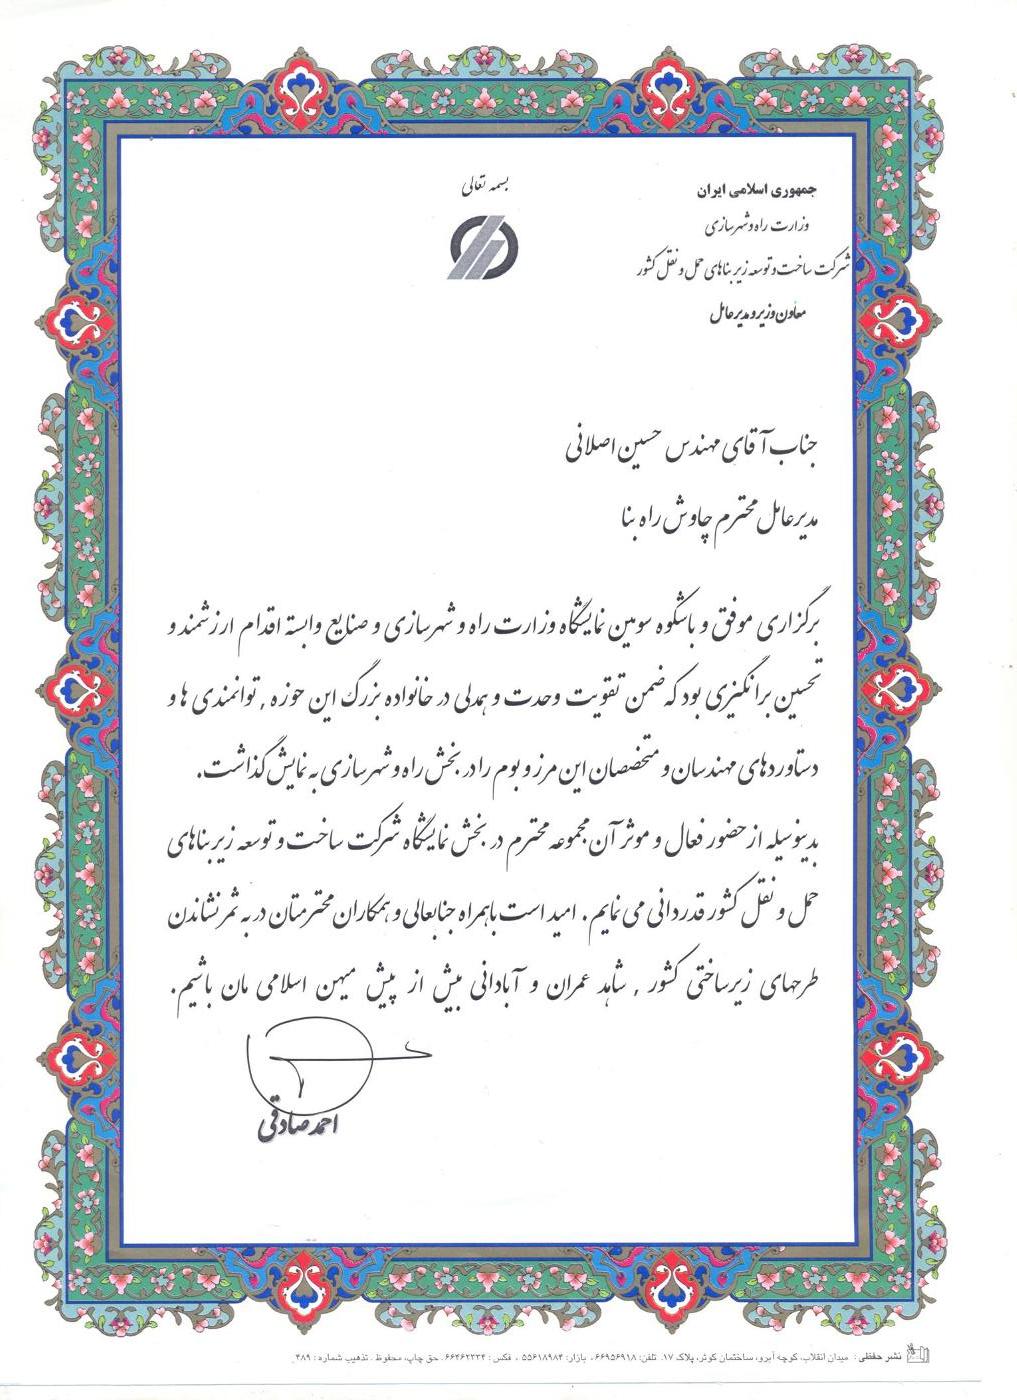 بسمه تعالی
جمهوری اسلامی ایران
وزارت راه و شهرسازی
شرکت ساخت و توسعه زیربناهای حمل و نقل کشور
معاون وزیر و مدیرعامل
جناب آقای مهندس حسین اصلانی
مدیرعامل محترم چاوش راه بنا
برگزاری موفق و باشکوه سومین نمایشگاه وزارت راه و شهرسازی و صنایع وابسته اقدام ارزشمند و
تحسین برانگیزی بود که ضمن تقویت وحدت و همدلی در خانواده بزرگ این حوزه , توانمندی ها و
دستاوردهای مهندسان و متخصصان این مرز و بوم را در بخش راه و شهرسازی به نمایش گذاشت.
بدینوسیله از حضور فعال و موثر آن مجموعه محترم در بخش نمایشگاه شرکت ساخت و توسعه زیربناهای
حمل و نقل کشور قدردانی می نمایم. امید است با همراه جنابعالی و همکاران محترمتان در به ثمر نشاندن
طرحهای زیرساختی کشور , شاهد عمران و آبادانی بیش از پیش میهن اسلامی مان باشیم.
احمد صادقی
نشر حفظی : میدان انقلاب، کوچه آبرو، ساختمان کوثر، پلاک ۱۷. تلفن: ۶۶۹۵۶۹۱۸ ، بازار: ۵۵۶۱۸۹۸۴ ، فکس : ۶۶۴۶۲۳۳۴. حق چاپ، محفوظ . تذهیب شماره : ۴۸۹